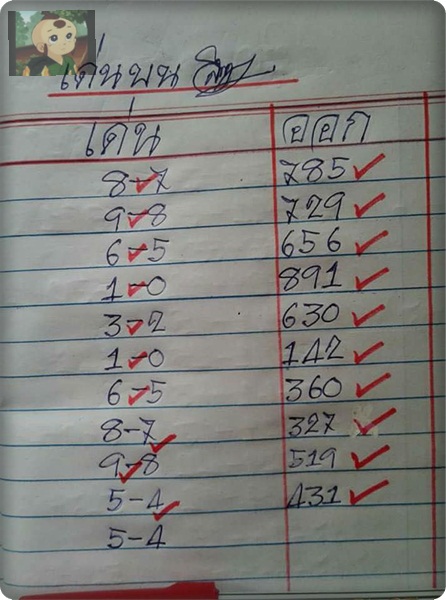 เด่นบน
เด่น ออก
8-7 785
9-8 729
6-5 656
1-0 891
3-2 630
1-0 142
6-5 360
8-7 327
9-8 519
5-4 431
5-4